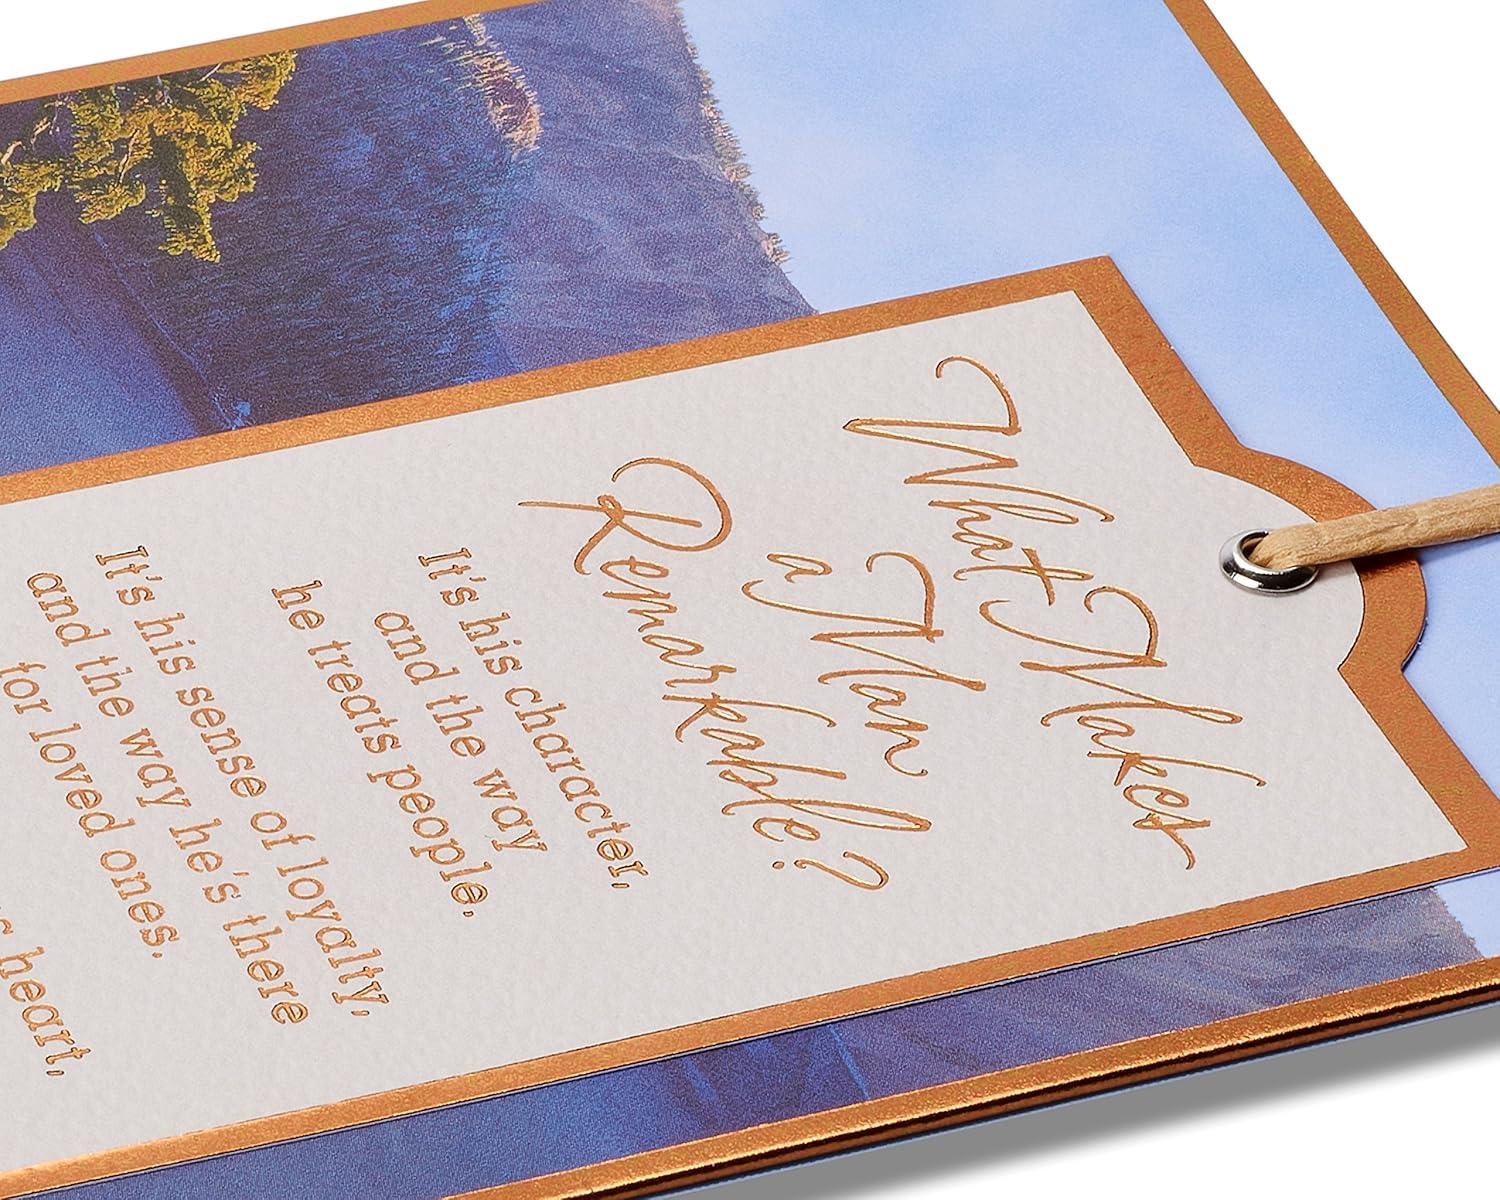 What Makes
a Man
Remarkable?
It's his character,
and the way
he treats people.
It's his sense of loyalty,
and the way he's there
for loved ones.
heart,